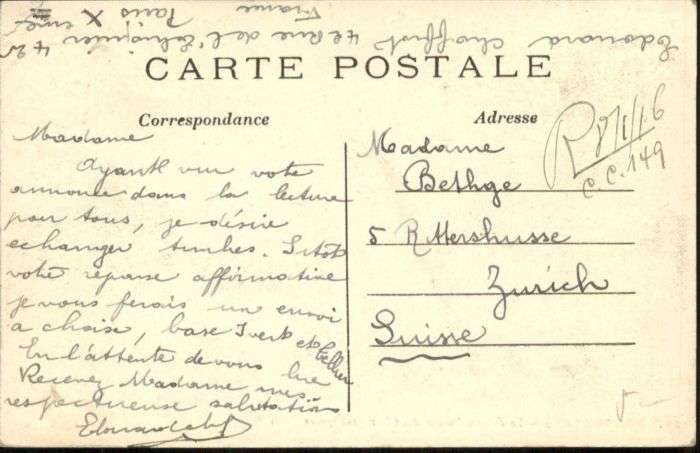 Edouard Choffist 42 Rue de l'Echiquier 42
Paris X eme
France
CARTE POSTALE
Correspondance
Adresse
Madame
Ayant vu votre
annonce dans la lecture
pour tous, je désire
echanger timbres. Sitot
votre reponse affirmative
je vous ferais un envoi
a choix, base Yvert et Tellier
En l'attente de vous lire
Recevez Madame mes
respectueuse salutations
Edouard
Madame
Bethge
5
Zurich
Suisse
R 8/1/16
C.C. 149